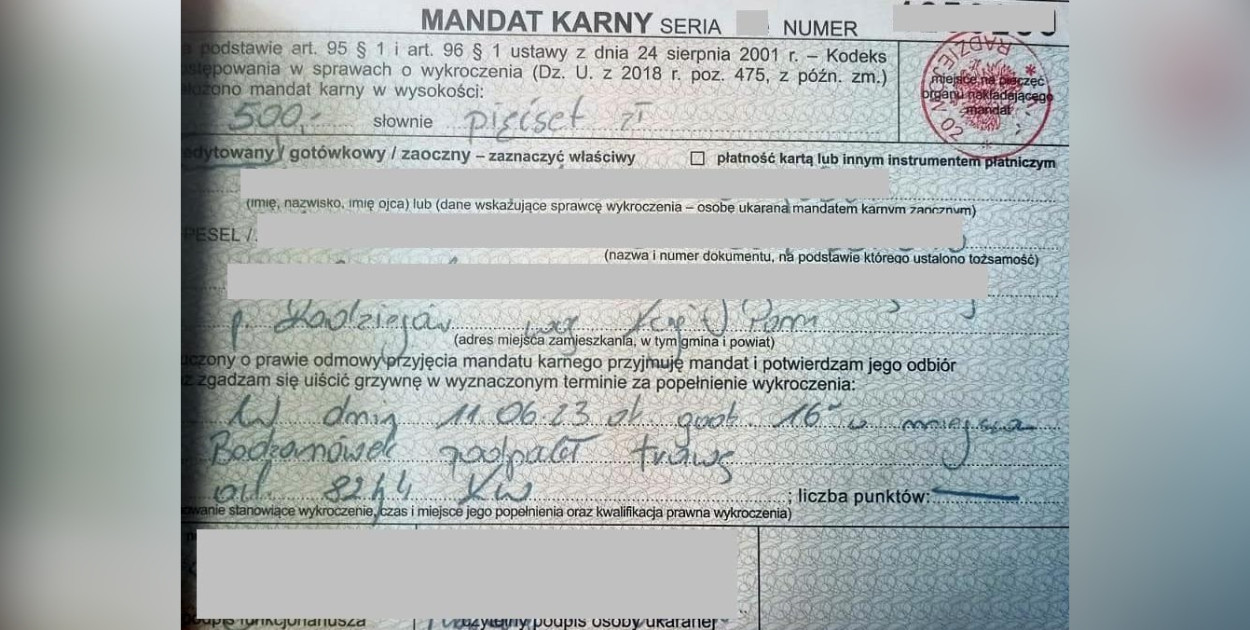 MANDAT KARNY SERIA NUMER
podstawie art. 95 § 1 i art. 96 § 1 ustawy z dnia 24 sierpnia 2001 r. – Kodeks
stępowania w sprawach o wykroczenia (Dz. U. z 2018 r. poz. 475, z późn. zm.)
ożono mandat karny w wysokości:
miejsce na pieczęć
organu nakładającego
mandat
02
500,- słownie pięćset zł
edytowany / gotówkowy / zaoczny – zaznaczyć właściwy ☐ płatność kartą lub innym instrumentem płatniczym
(imię, nazwisko, imię ojca) lub (dane wskazujące sprawcę wykroczenia – osobę ukaraną mandatem karnym zaocznym)
PESEL /
(nazwa i numer dokumentu, na podstawie którego ustalono tożsamość)
p. Radziejów woj
(adres miejsca zamieszkania, w tym gmina i powiat)
uczony o prawie odmowy przyjęcia mandatu karnego przyjmuję mandat i potwierdzam jego odbiór
z zgadzam się uiścić grzywnę w wyznaczonym terminie za popełnienie wykroczenia:
W dniu 11.06.23 ok godz. 16 w miejsc
podpalał trawę
art. 82 § 4 KW ; liczba punktów:
owanie stanowiące wykroczenie, czas i miejsce jego popełnienia oraz kwalifikacja prawna wykroczenia)
podpis funkcjonariusza czytelny podpis osoby ukaranej